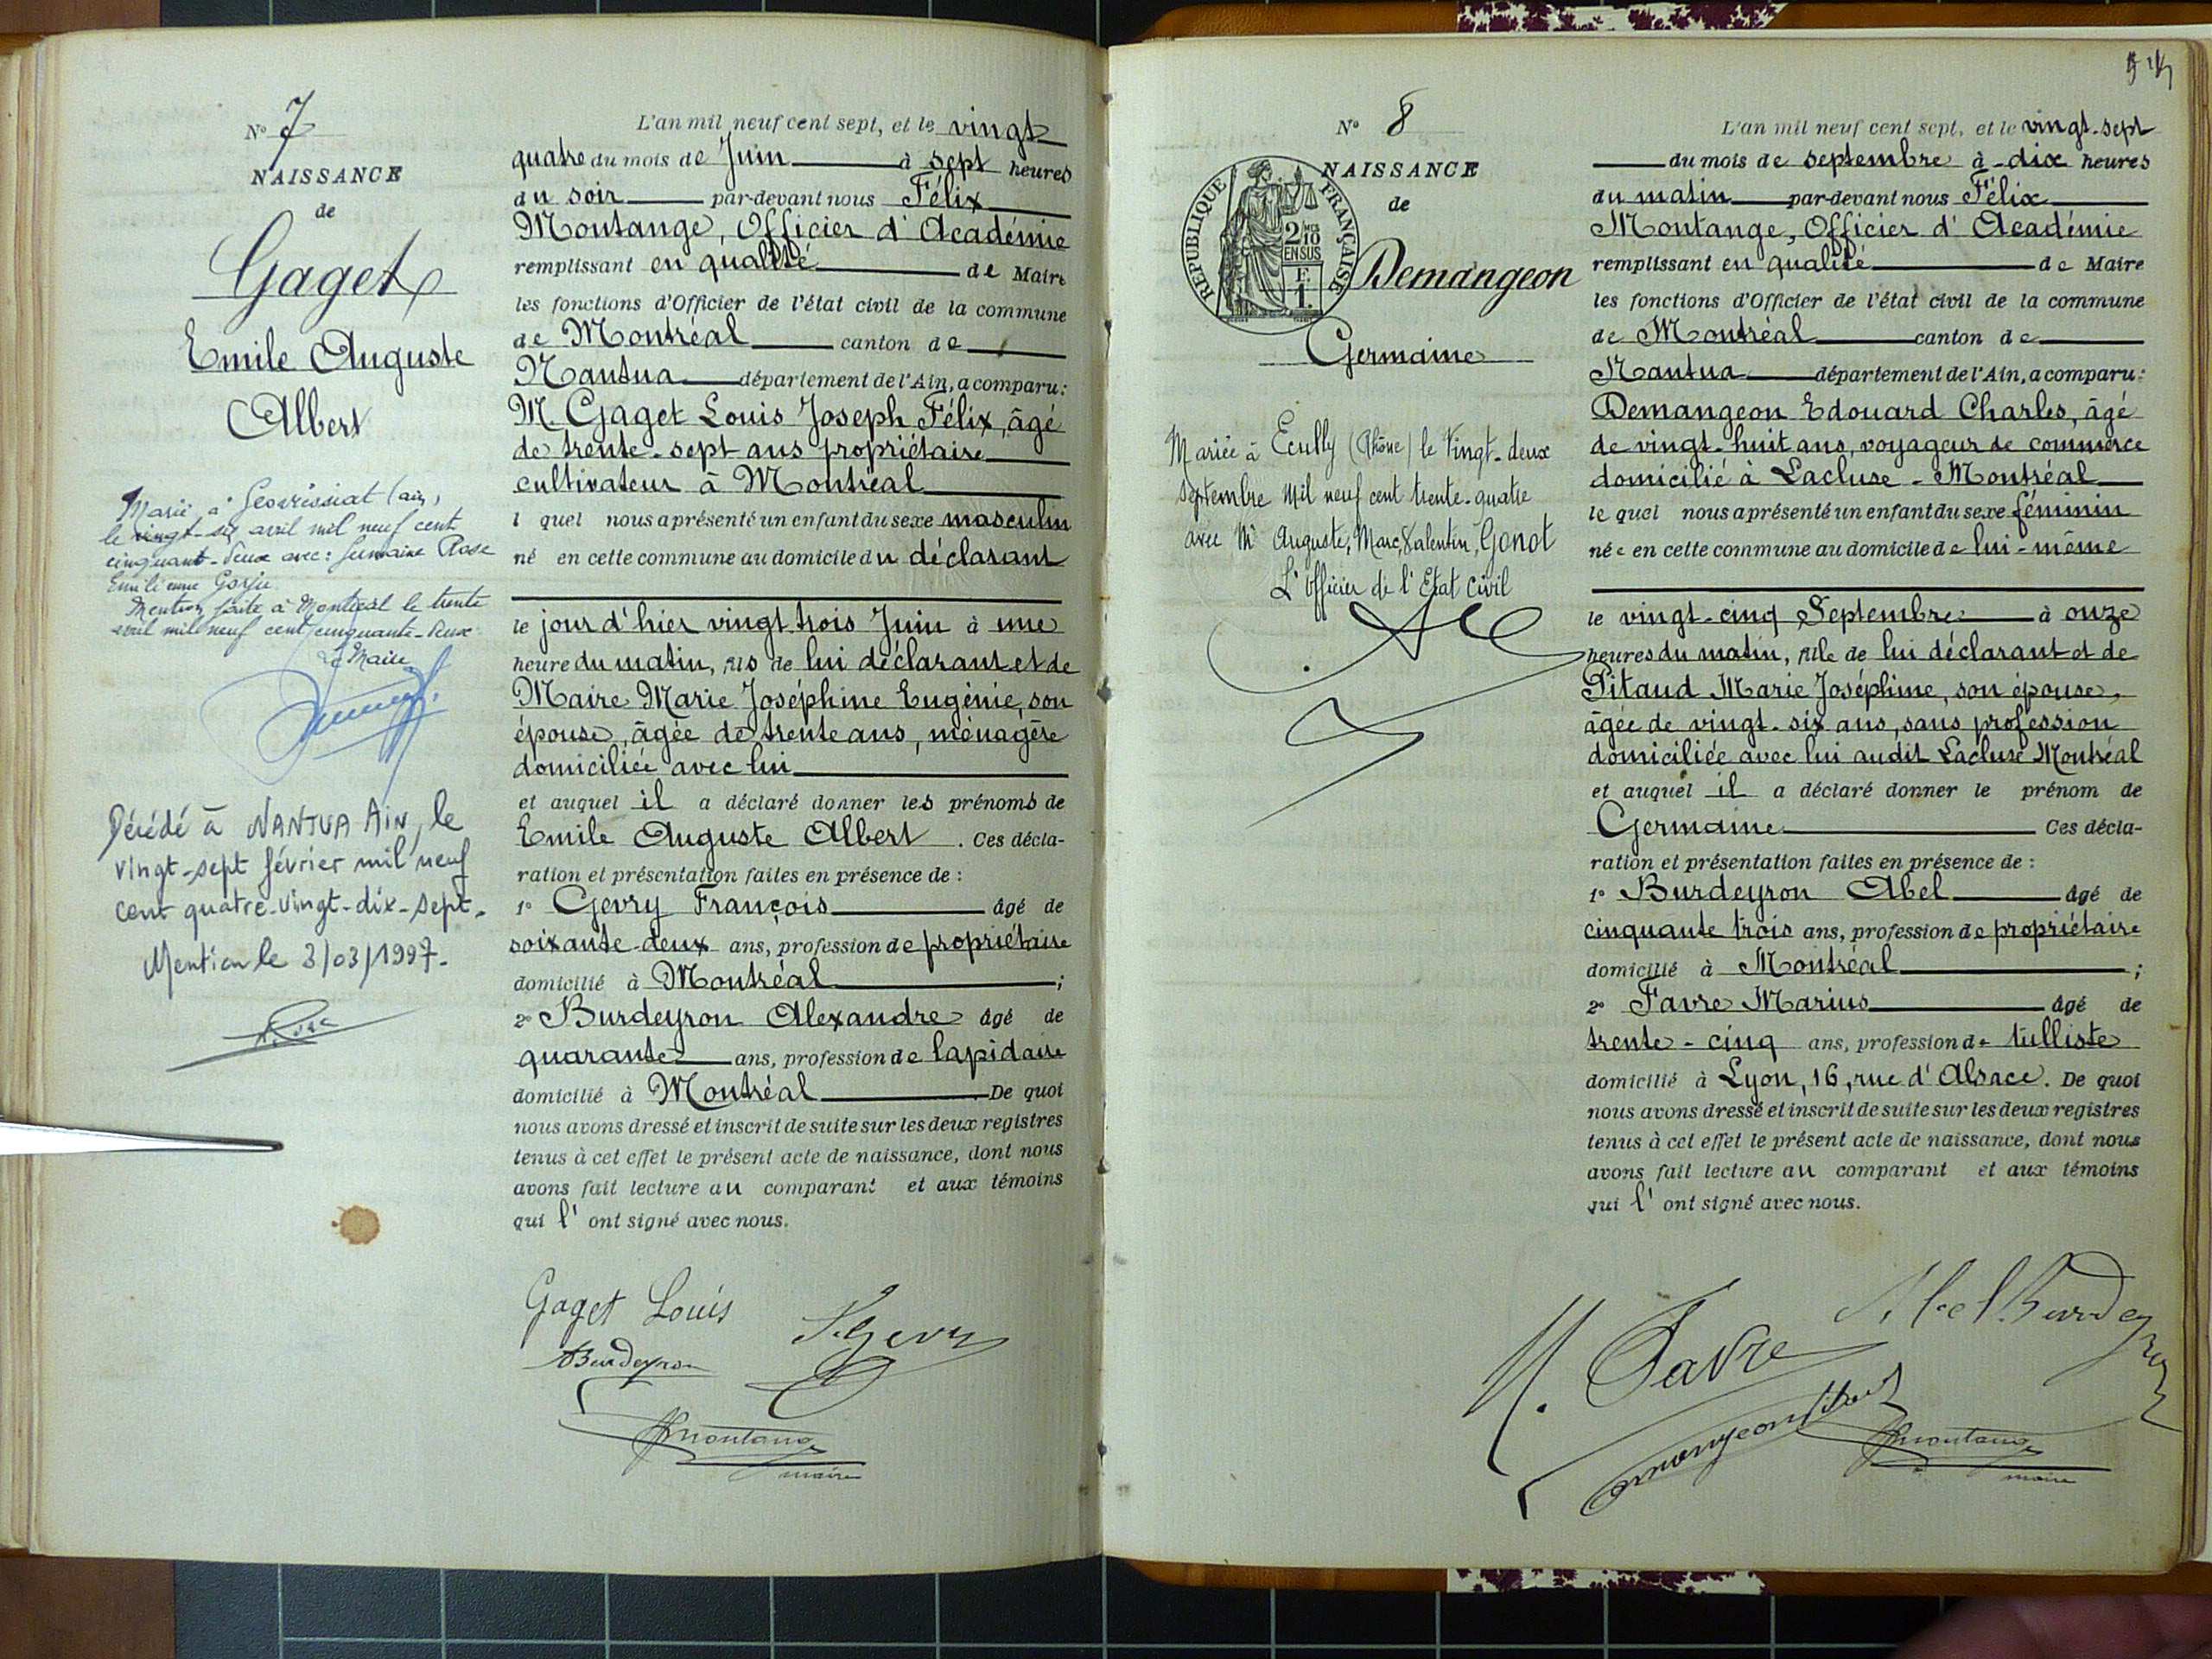 N° 7
NAISSANCE
de
Gaget
Emile Auguste
Albert
Marié à Géovreissiat (ain),
le vingt-six avril mil neuf cent
cinquante-deux avec: Germaine Rose
Emilienne Gorju
Mention faite à Montréal le trente
avril mil neuf cent cinquante-deux
Le Maire
Décédé à NANTUA AIN, le
vingt-sept février mil neuf
cent quatre-vingt-dix-sept.
Mention le 3/03/1997.
L'an mil neuf cent sept, et le vingt
quatre du mois de Juin à sept heures
du soir par-devant nous Félix
Montange, Officier d'Académie
remplissant en qualité de Maire
les fonctions d'Officier de l'état civil de la commune
de Montréal canton de
Nantua département de l'Ain, a comparu:
M. Gaget Louis Joseph Félix, âgé
de trente-sept ans propriétaire
cultivateur à Montréal
l quel nous a présenté un enfant du sexe masculin
né en cette commune au domicile du déclarant
le jour d'hier vingt trois Juin à une
heure du matin, fils de lui déclarant et de
Maire Marie Joséphine Eugénie, son
épouse, âgée de trente ans, ménagère
domiciliée avec lui
et auquel il a déclaré donner les prénoms de
Emile Auguste Albert. Ces décla-
ration et présentation faites en présence de :
1° Gevry François âgé de
soixante-deux ans, profession de propriétaire
domicilié à Montréal ;
2° Burdeyron Alexandre âgé de
quarante ans, profession de lapidaire
domicilié à Montréal. De quoi
nous avons dressé et inscrit de suite sur les deux registres
tenus à cet effet le présent acte de naissance, dont nous
avons fait lecture au comparant et aux témoins
qui l' ont signé avec nous.
Gaget Louis
F. Gevry
ABurdeyron
FMontange
maire
N° 8
NAISSANCE
de
REPUBLIQUE FRANÇAISE
2/10 EN SUS
F. 1.
Demangeon
Germaine
Mariée à Ecully (Rhône) le Vingt-deux
septembre Mil neuf cent trente-quatre
avec Mr Auguste, Marc, Valentin, Gonot
L'officier de l'Etat civil
L'an mil neuf cent sept, et le vingt-sept
du mois de septembre à dix heures
du matin par-devant nous Félix
Montange, Officier d'Académie
remplissant en qualité de Maire
les fonctions d'Officier de l'état civil de la commune
de Montréal canton de
Nantua département de l'Ain, a comparu:
Demangeon Edouard Charles, âgé
de vingt-huit ans, voyageur de commerce
domicilié à Lacluse-Montréal
le quel nous a présenté un enfant du sexe féminin
née en cette commune au domicile de lui-même
le vingt-cinq Septembre à onze
heures du matin, fille de lui déclarant et de
Pitaud Marie Joséphine, son épouse,
âgée de vingt-six ans, sans profession
domiciliée avec lui audit Lacluse Montréal
et auquel il a déclaré donner le prénom de
Germaine Ces décla-
ration et présentation faites en présence de :
1° Burdeyron Abel âgé de
cinquante trois ans, profession de propriétaire
domicilié à Montréal ;
2° Favre Marius âgé de
trente-cinq ans, profession de tulliste
domicilié à Lyon, 16, rue d'Alsace. De quoi
nous avons dressé et inscrit de suite sur les deux registres
tenus à cet effet le présent acte de naissance, dont nous
avons fait lecture au comparant et aux témoins
qui l' ont signé avec nous.
Abel Burdeyron
M. Favre
FMontange
maire